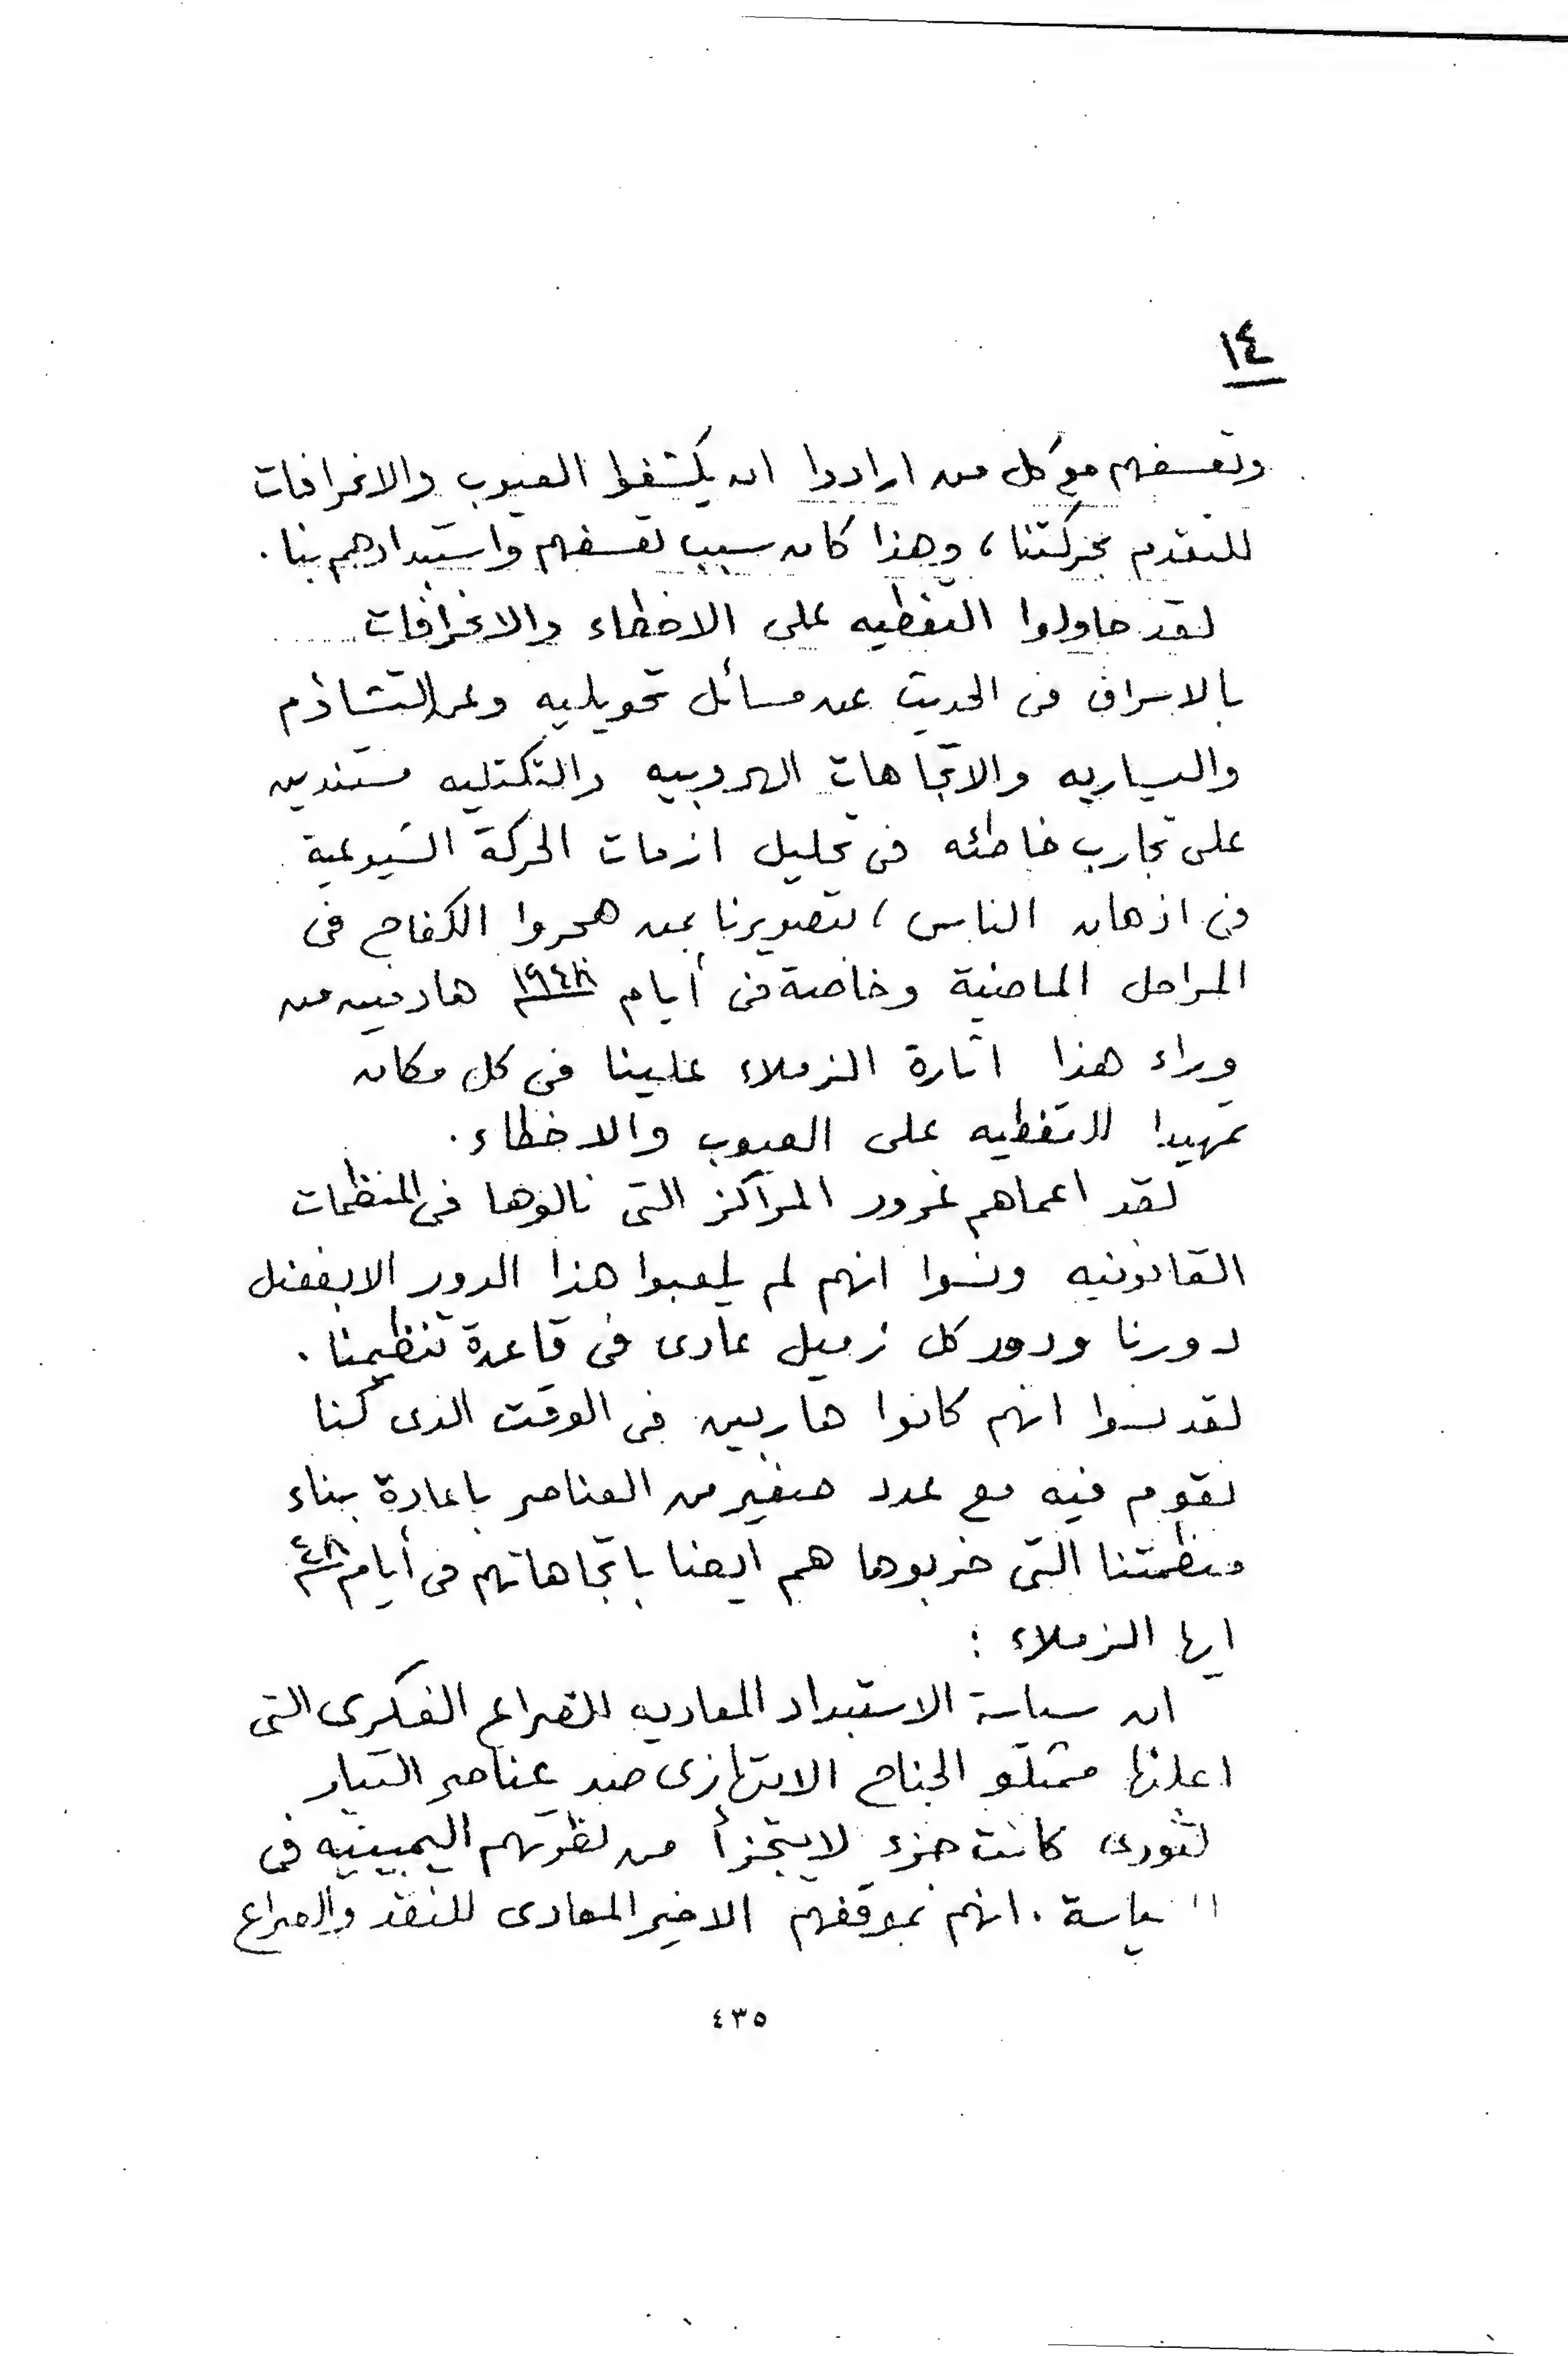 ١٤
وتعسفهم مع كل من ارادوا ان يكشفوا العيوب والانحرافات
للتقدم بحركتنا، وهذا كان سبب تعسفهم واستبدادهم بنا.
لقد حاولوا التغطيه على الاخطاء والانحرافات
بالاسراف فى الحديث عن مسائل تحويليه وعن التشاؤم
واليساريه والاتجاهات الهروبيه والتكتليه مستندين
على تجارب خاطئه فى تحليل ازمات الحركة الشيوعية
فى اذهان الناس، لتصويرنا بمن هجروا الكفاح فى
المراحل الماضية وخاصة فى أيام ١٩٤٨ هادفين من
وراء هذا اثارة الزملاء علينا فى كل مكان
تمهيدا للتغطيه على العيوب والاخطاء.
لقد اعماهم غرور المراكز التى نالوها فى المنظمات
القانونيه ونسوا انهم لم يلعبوا هذا الدور الا بفضل
دورنا ودور كل زميل عادى فى قاعدة تنظيمنا.
لقد نسوا انهم كانوا هاربين فى الوقت الذى كنا
نقوم فيه مع عدد صغير من العناصر باعادة بناء
منظمتنا التى خربوها هم ايضا باتجاهاتهم فى أيام ٤٨
ايها الزملاء :
ان سياسة الاستبداد المعاديه للصراع الفكرى التى
اعلنها ممثلو الجناح الانتهازى ضد عناصر التيار
لثورى كانت جزء لايتجزأ من نظرتهم اليمينيه فى
ال ياسة. انهم بموقفهم الاخير المعادى للنقد والصراع
٤٣٥